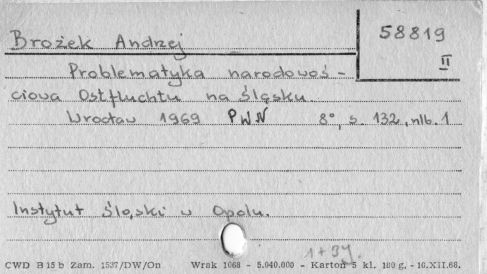 58819
II
Brożek Andrzej
Problematyka narodowoś-
ciowa Ostfluchtu na Śląsku.
Wrocław 1969 PWN 8°, s. 132, nlb. 1
Instytut Śląski w Opolu.
1+39.
CWD B 15 b Zam. 1537/DW/On Wrak 1068 - 5.040.000 - Karton 5 kl. 180 g, - 16.XII.68.